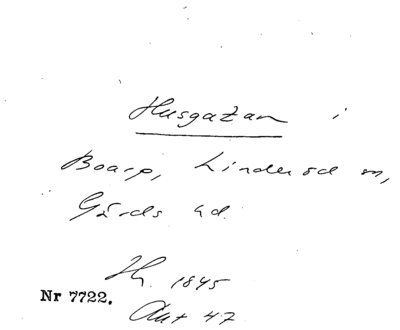 Husgatan i
Boarp, Linderöd sn,
Gärds hd.
Hj. 1845
Nr 7722.
47